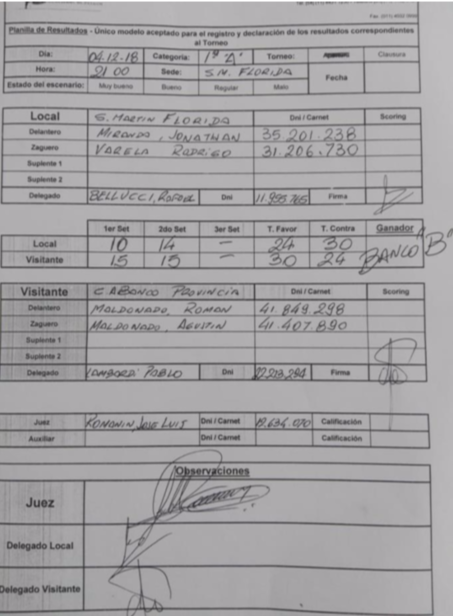 Planilla de Resultados - Único modelo aceptado para el registro y declaración de los resultados correspondientes
al Torneo
Día: 04.12-18 Categoría: 1º "A" Torneo: Clausura
Hora: 21 00 Sede: S.M. FLORIDA Fecha
Estado del escenario: Muy bueno Bueno Regular Malo
Local S. MARTIN FLORIDA Dni / Carnet Scoring
Delantero MIRANDA, JONATHAN 35.201.238
Zaguero VARELA RODRIGO 31.206.730
Suplente 1
Suplente 2
Delegado BELLUCCI, RAFAEL Dni 11.955.765 Firma
1er Set 2do Set 3er Set T. Favor T. Contra Ganador
Local 10 14 - 24 30 BANCO "B"
Visitante 15 15 - 30 24
Visitante C.A BANCO PROVINCIA Dni / Carnet Scoring
Delantero MALDONADO, ROMAN 41.849.298
Zaguero MALDONADO, AGUSTIN 41.407.890
Suplente 1
Suplente 2
Delegado PABLO Dni Firma
Juez ROMANIN, JOSE LUIS Dni / Carnet Calificación
Auxiliar Dni / Carnet Calificación
Observaciones
Juez
Delegado Local
Delegado Visitante